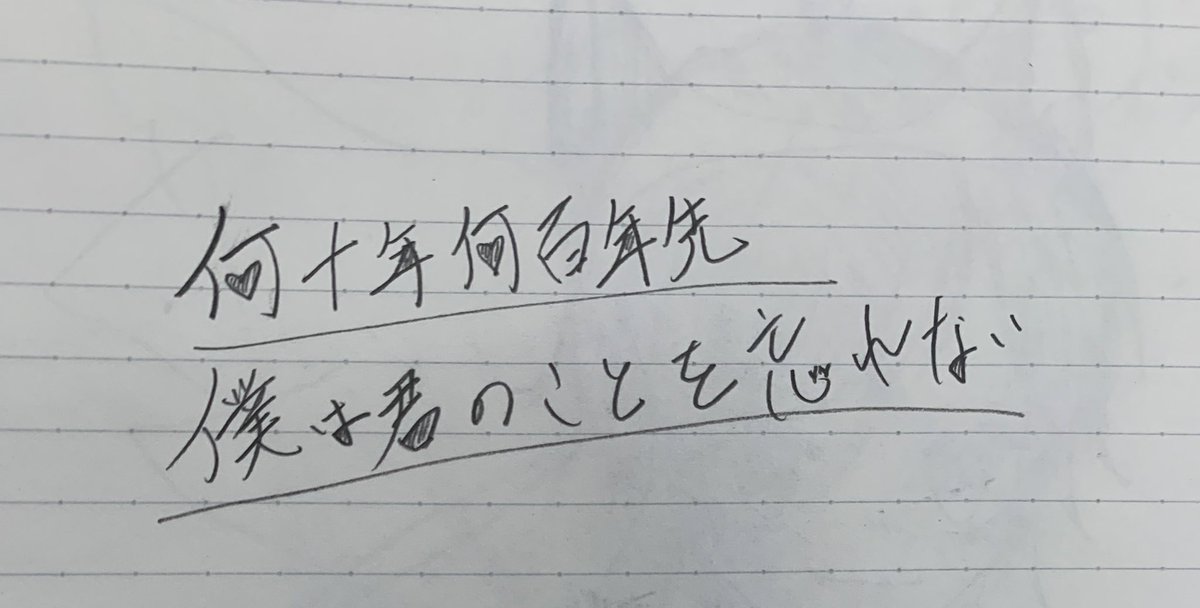 何十年何百年先
僕は君のことを忘れない